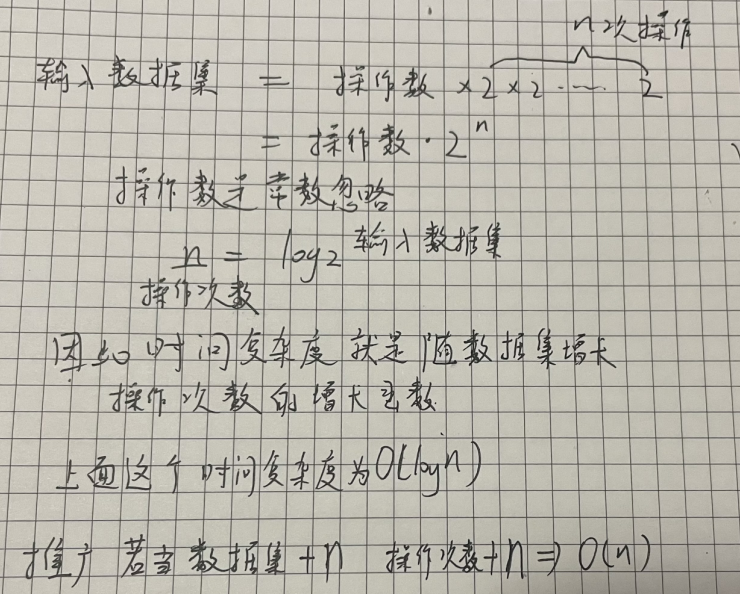 n次操作
输入数据集 = 操作数 ×2×2 ...... 2
= 操作数 · 2^n
操作数是常数忽略
n = log2 输入数据集
操作次数
因为时间复杂度就是随数据集增长
操作次数的增长函数
上面这个时间复杂度为O(logn)
推广 若当数据集+n 操作次数+n ⇒ O(n)